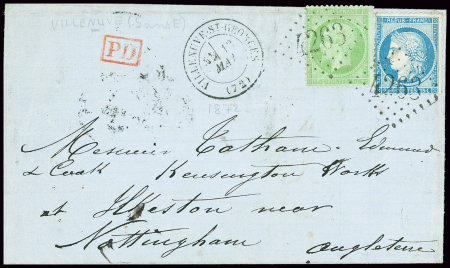 VILLENEUVE (Seine)
P.D.
VILLENEUVE-ST-GEORGES
MAI
(72)
4263
REPUB. FRANC.
4263
Messieurs Cotham Edmund
& Cook Kensington Works
at Ilkeston near
Nottingham Angleterre